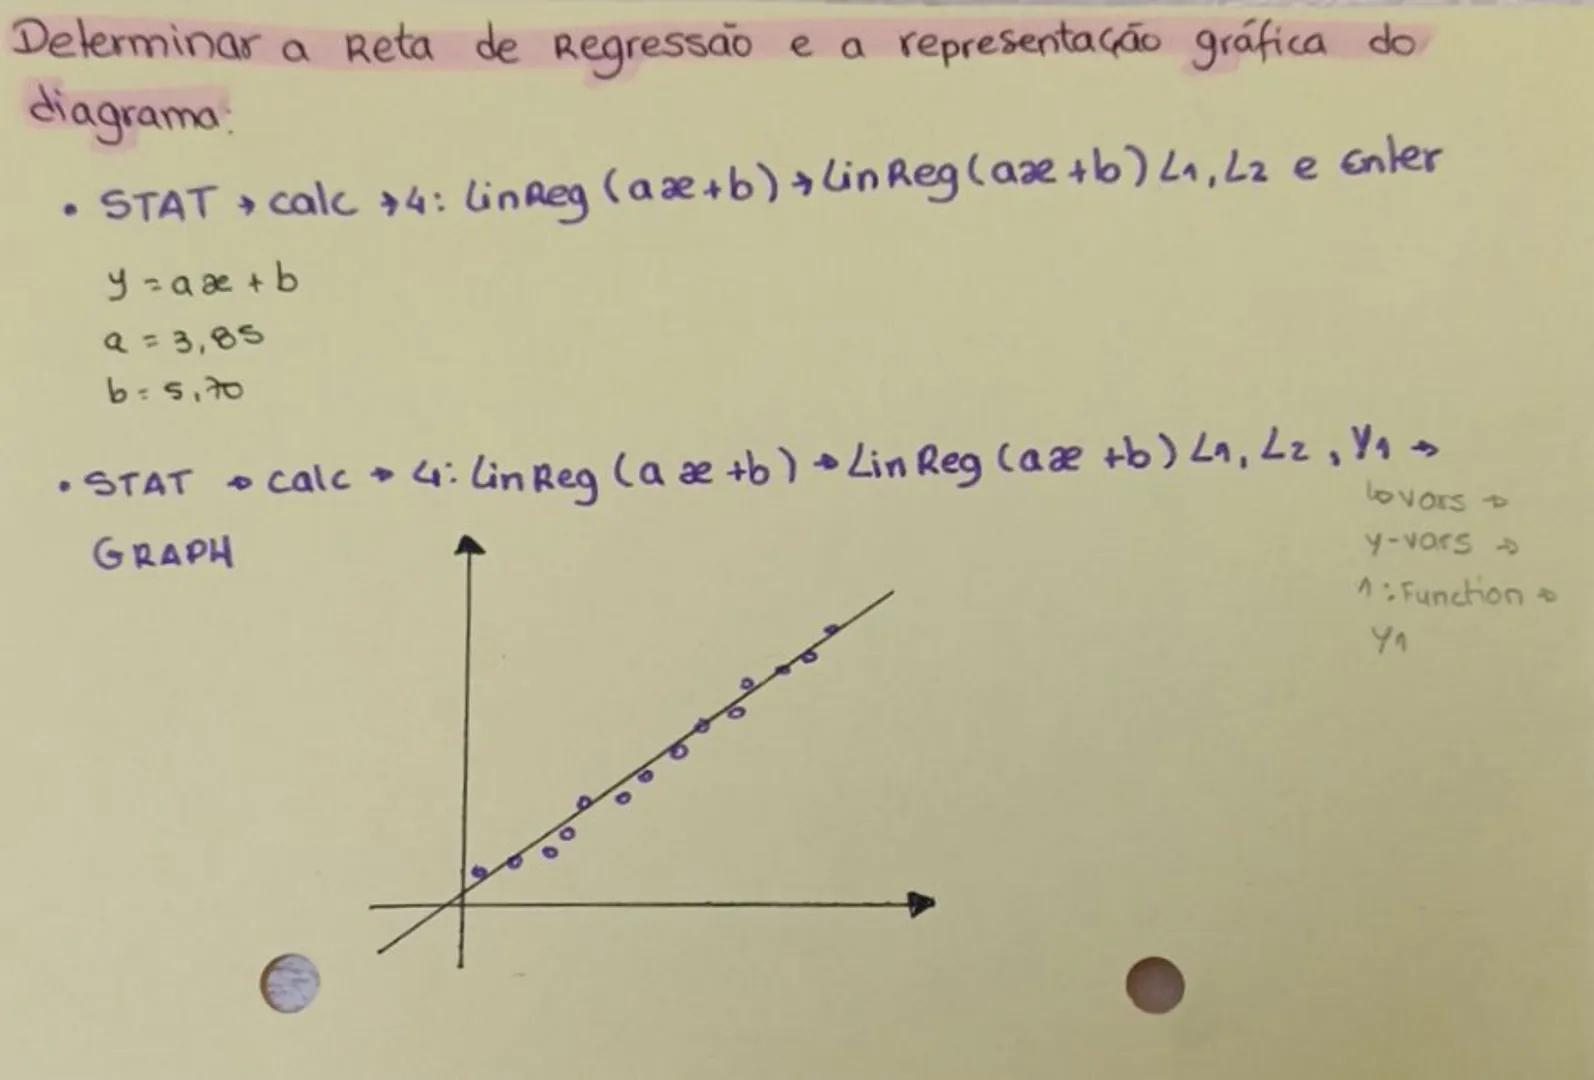 Determinar a Reta de Regressão e a representação gráfica do
diagrama:
• STAT → calc → 4: LinReg (ax+b) → LinReg (ax+b) L1, L2 e Enter
y = ax + b
a = 3,85
b = 5,70
• STAT → calc → 4: LinReg (ax+b) → LinReg (ax+b) L1, L2, Y1 →
↳ vars →
GRAPH
y-vars →
1: Function →
Y1